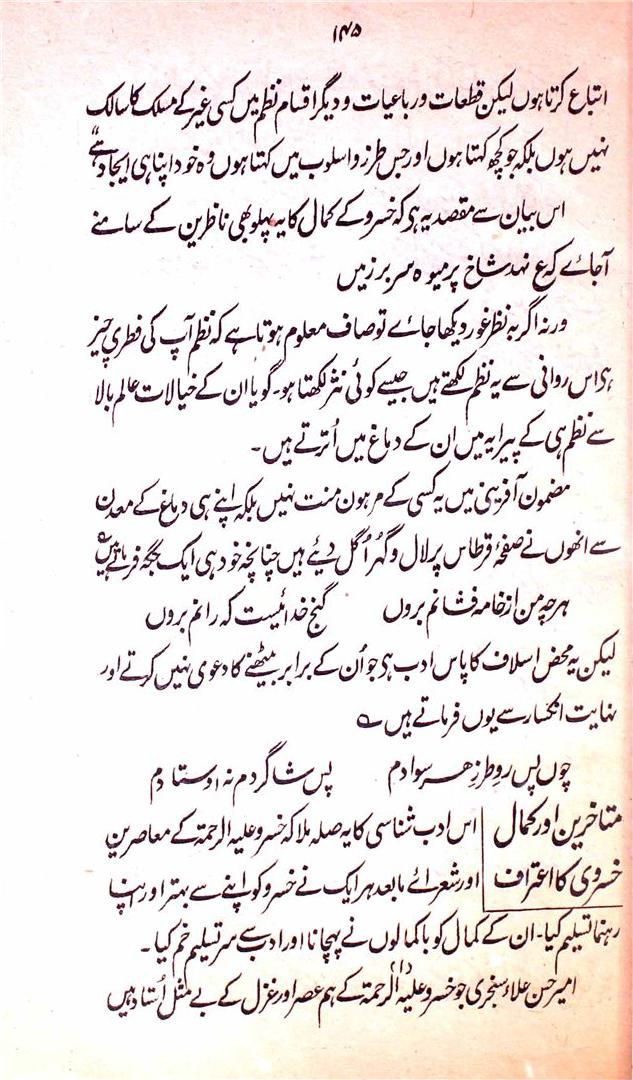 ۱۴۵
اتباع کرتا ہوں لیکن قطعات ورباعیات و دیگر اقسام نظم میں کسی غیر کے مسلک کا سالک
نہیں ہوں بلکہ جو کچھ کہتا ہوں اور جس طرز و اسلوب میں کہتا ہوں وہ خود اپنا ہی ایجاد ہے"
اس بیان سے مقصد یہ ہی کہ خسرو کے کمال کا یہ پہلو بھی ناظرین کے سامنے
آجائے کہ ع نہد شاخ پر میوہ سر بر زمیں
ورنہ اگر بہ نظر غور دیکھا جائے تو صاف معلوم ہوتا ہے کہ نظم آپ کی فطری چیز
ہی اس روانی سے یہ نظم لکھتے ہیں جیسے کوئی نثر لکھتا ہو۔ گویا ان کے خیالات عالم بالا
سے نظم ہی کے پیرایہ میں ان کے دماغ میں اُترتے ہیں۔
مضمون آفرینی میں یہ کسی کے مرہون منت نہیں بلکہ اپنے ہی دماغ کے معدن
سے انھوں نے صفحۂ قرطاس پر لال و گہر اُگل دیئے ہیں چنانچہ خود ہی ایک جگہ فرماتے ہیں ؎
ہرچہ من از خامہ فشانم بروں گنج خدائیست کہ رانم بروں
لیکن یہ محض اسلاف کا پاس ادب ہی جو اُن کے برابر بیٹھنے کا دعوی نہیں کرتے اور
نہایت انکسار سے یوں فرماتے ہیں ؎
چوں پس رو طرز ہر سوادم پس شاگردم نہ اوستادم
متاخرین اور کمال
خسروی کا اعتراف
اس ادب شناسی کا یہ صلہ ملا کہ خسرو علیہ الرحمۃ کے معاصرین
اور شعرائے مابعد ہر ایک نے خسرو کو اپنے سے بہتر اور اپنا
رہنما تسلیم کیا۔ ان کے کمال کو باکمالوں نے پہچانا اور ادب سے سر تسلیم خم کیا۔
امیر حسن علاء سنجری جو خسرو علیہ الرحمۃ کے ہم عصر اور غزل کے بے مثل اُستاد ہیں